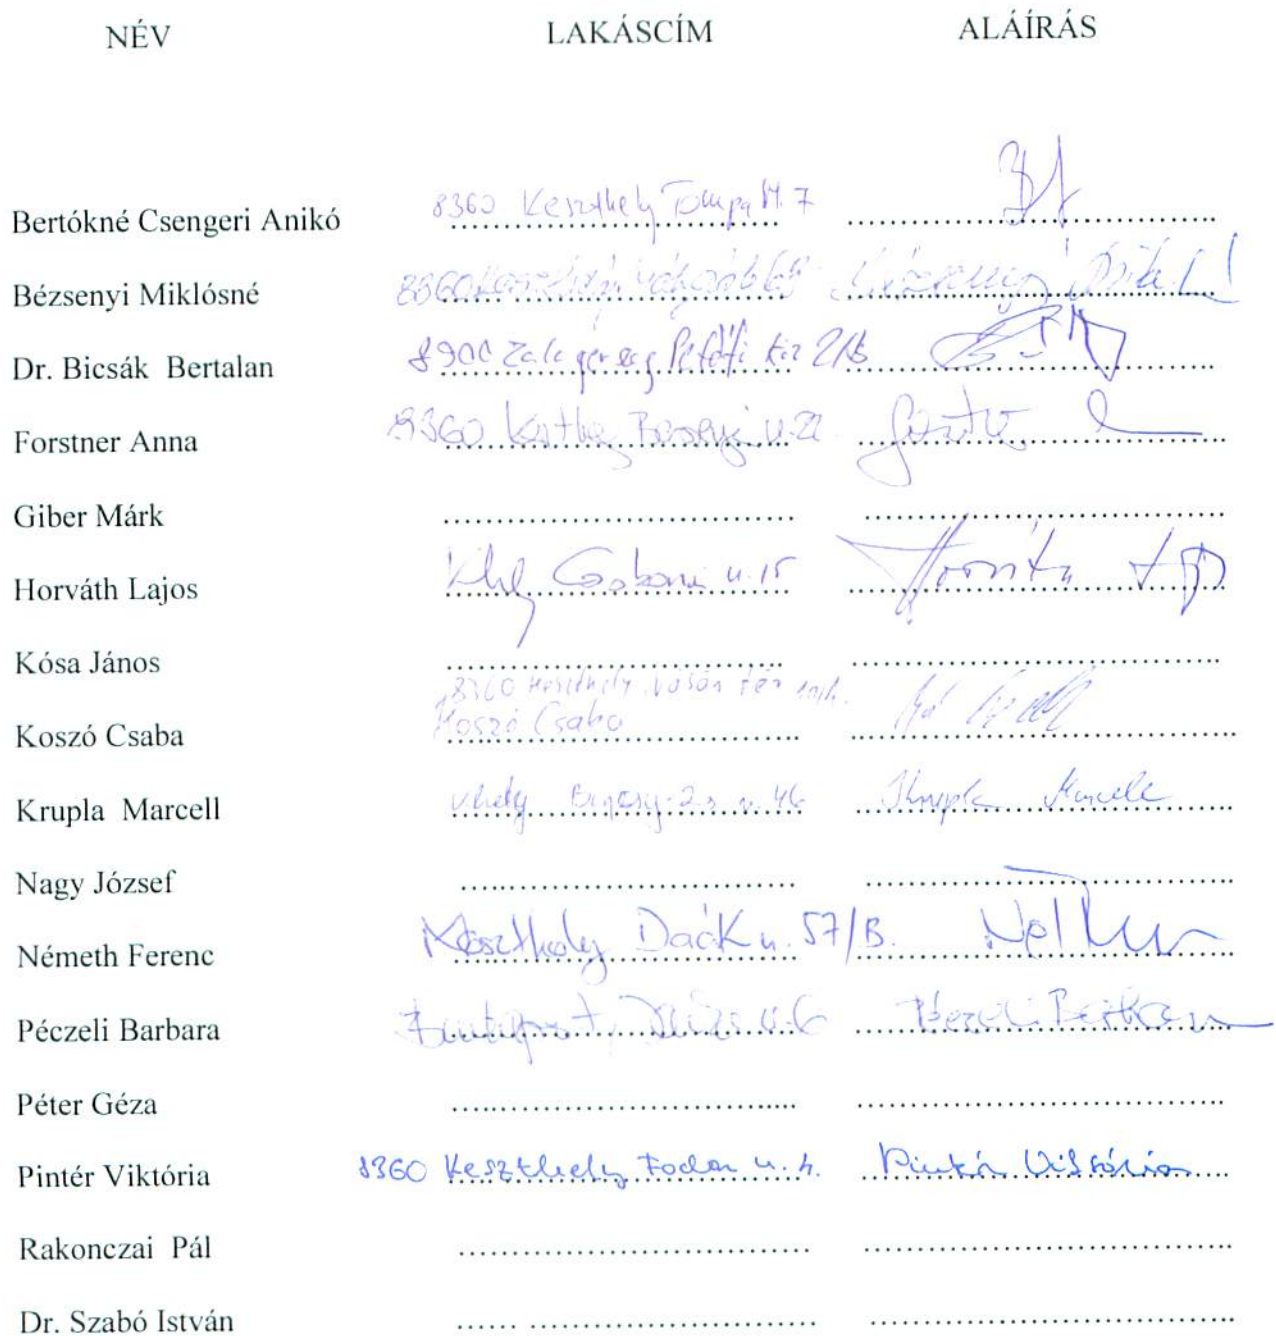 NÉV LAKÁSCÍM ALÁÍRÁS
Bertókné Csengeri Anikó 8360 Keszthely Tompa M. 7
Bézsenyi Miklósné 8360
Dr. Bicsák Bertalan 8900 Petőfi 2/B
Forstner Anna 8360 u. 22
Giber Márk
Horváth Lajos Khely Csokonai u. 15 Horváth
Kósa János
8360 Keszthely Vásár tér
Koszó Csaba Koszó Csaba
Krupla Marcell u. 46 Krupla Marcell
Nagy József
Németh Ferenc Keszthely Deák u. 57/B.
Péczeli Barbara Budapest, u. 6 Péczeli Barbara
Péter Géza
Pintér Viktória 8360 Keszthely Fodor u. 4. Pintér Viktória
Rakonczai Pál
Dr. Szabó István